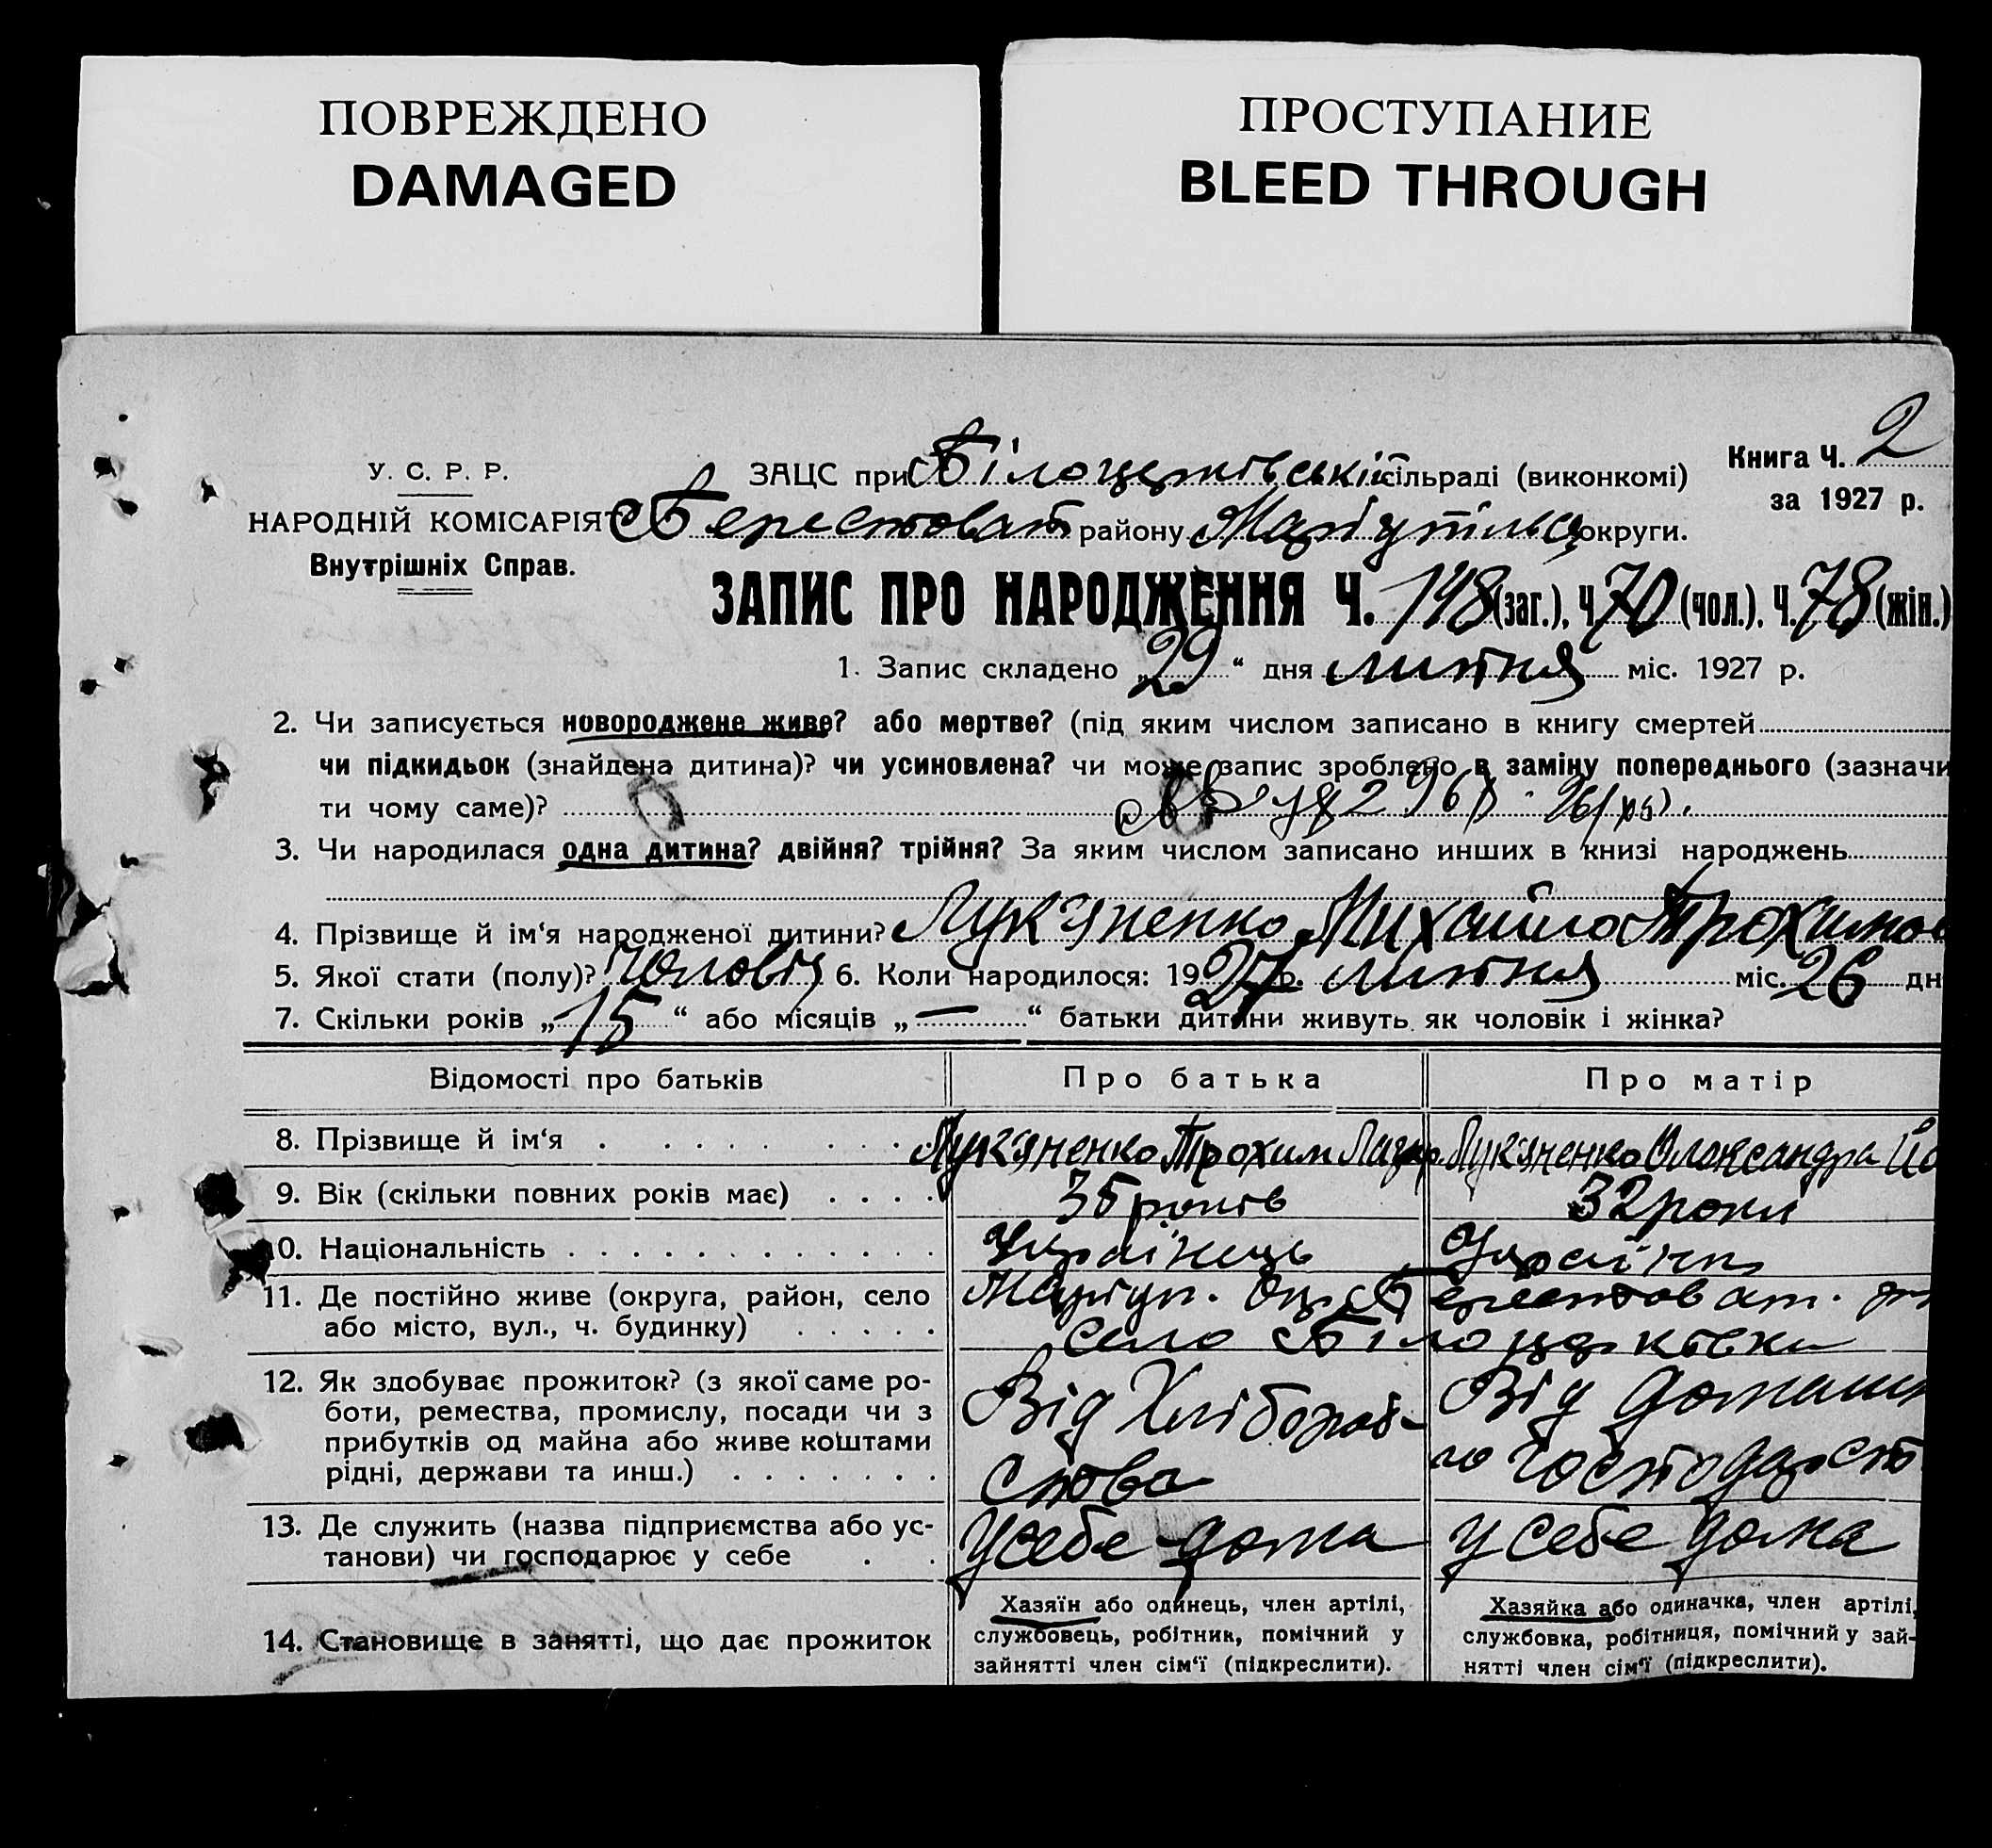 ПОВРЕЖДЕНО
DAMAGED
ПРОСТУПАНИЕ
BLEED THROUGH
Книга Ч. 2
за 1927 р.
У. С. Р. Р.
НАРОДНІЙ КОМІСАРІЯТ
Внутрішніх Справ.
ЗАЦС при Білоцерківській сільраді (виконкомі)
Берестоват району Маріупільц округи.
ЗАПИС ПРО НАРОДЖЕННЯ Ч. 148 (заг.), Ч. 70 (чол.), Ч. 78 (жін.)
1. Запис складено „29“ дня липня міс. 1927 р.
2. Чи записується новороджене живе? або мертве? (під яким числом записано в книгу смертей
чи підкидьок (знайдена дитина)? чи усиновлена? чи може запис зроблено в заміну попереднього (зазначи
ти чому саме)?
3. Чи народилася одна дитина? двійня? трійня? За яким числом записано инших в книзі народжень
4. Прізвище й ім‘я народженої дитини? Лук‘яненко Михайло Трохимов
5. Якої стати (полу)? Чоловіч 6. Коли народилося: 1927 р. липня міс. 26 дн
7. Скільки років „15“ або місяців „—“ батьки дитини живуть як чоловік і жінка?
Відомості про батьків Про батька Про матір
8. Прізвище й ім‘я Лук‘яненко Трохим Лазар. Лук‘яненко Олександра Йо
9. Вік (скільки повних років має) 35 років 32 роки
10. Національність Українець Українка
11. Де постійно живе (округа, район, село Маріуп. Окр. Берестоват.
або місто, вул., ч. будинку) село Білоцерківка
12. Як здобуває прожиток? (з якої саме ро-
боти, ремества, промислу, посади чи з
прибутків од майна або живе коштами
рідні, держави та инш.)
Від Хлібороб-
ства
Від домашн
го господарст
13. Де служить (назва підприємства або ус-
танови) чи господарює у себе
У себе дома
У себе дома
14. Становище в занятті, що дає прожиток
Хазяїн або одинець, член артілі,
службовець, робітник, помічний у
зайнятті член сім‘ї (підкреслити).
Хазяйка або одиначка, член артілі,
службовка, робітниця, помічний у зай-
нятті член сім‘ї (підкреслити).